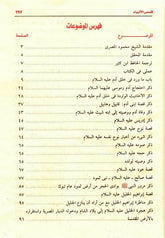 قصص الأنبياء ٧٩٣
فهرس الموضوعات
الموضوع الصفحة
مقدمة الشيخ محمود المصري ٣
مقدمة المحقق
ترجمة الحافظ ابن كثير ٧
عملي في الكتاب
باب ما ورد في خلق آدم عليه السلام
ذكر احتجاج آدم وموسى عليهما السلام
ذكر الأحاديث الواردة في خلق آدم عليه السلام
ذكر قصة ابني آدم: قابيل وهابيل
ذكر وفاة آدم ووصيته إلى ابنه شيث عليه السلام
ذكر إدريس عليه السلام
قصة نوح عليه السلام
ذكر شيء من أخبار نوح نفسه عليه السلام
ذكر صومه عليه السلام
ذكر حجه عليه السلام
ذكر وصيته لولده عليه السلام
قصة هود عليه السلام
قصة صالح عليه السلام
ذكر مرور النبي ﷺ بوادي الحجر من أرض ثمود عام تبوك
قصة إبراهيم الخليل عليه السلام
ذكر مناظرة إبراهيم الخليل مع من أراد أن ينازع الجليل
ذكر هجرة الخليل عليه السلام إلى بلاد الشام ودخوله الديار المصرية واستقراره
بالأرض المقدسة